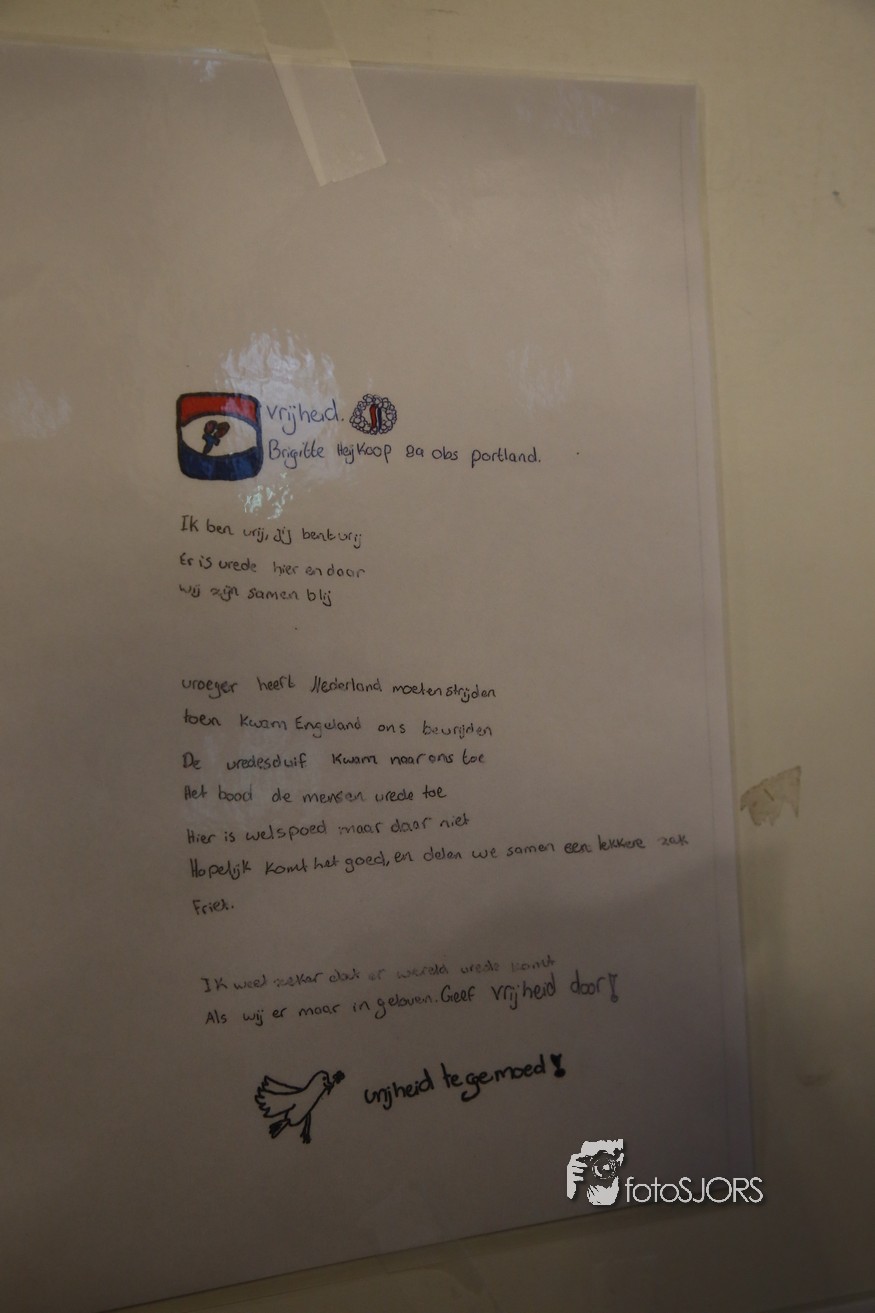 vrijheid.
Brigitte Heijkoop 8a obs portland.
Ik ben vrij, jij bent vrij
Er is vrede hier en daar
wij zijn samen blij
vroeger heeft Nederland moeten strijden
toen kwam Engeland ons bevrijden
De vredesduif kwam naar ons toe
Het bood de mensen vrede toe
Hier is welspoed maar daar niet
Hopelijk komt het goed, en delen we samen een lekkere zak
Friet.
Ik weet zeker dat er wereld vrede komt
Als wij er maar in geloven. Geef vrijheid door!
vrijheid tegemoed!
fotoSJORS